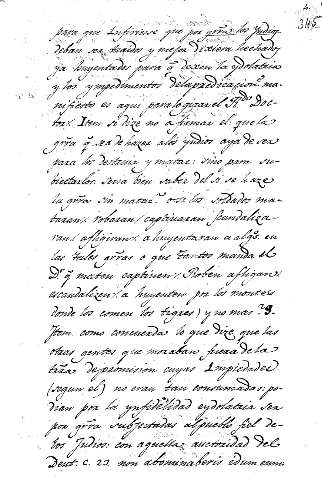 4.
345
para que Infiriese que por grrā los Judios
deban ser traidos y mejor dixiera hechados
ya huyentados para q̃ dexen la ydolatria
y los ynpedimentos dela predicacion. ma-
nifiesto es aqui paralogicar el Sr. Doc-
tor. Item Si dize no a firmar el que la
grrā q̃ sea de hazer alos yndios aya de ser
para los destruir y matar: sino para su-
bietarlos. Seria bien saber del si se haze
la grrā sin matar. o si los soldados ma-
taran: robaran: captiuaran: scandaliza-
ran: afligiran: a huyentaran a algs. en
las tales grrās o que Tantos manda el
Dr. q̃ maten captiuen: Roben aflijan:
escandalizen: a huyenten por los montes
donde los comen los tigres) y no mas?
Item como concuerda lo que dize que las
otras gentes que moraban fuera dela
trrā de promision cuyas Impiedades
(segun el) no eran tan consumadas: po-
dian por la ynfidelidad eydolatria ser
por grrā subjectadas al pueblo fiel de
los Judios: con aquella auctoridad del
Deut. c. 23 non abominaberis idumeum